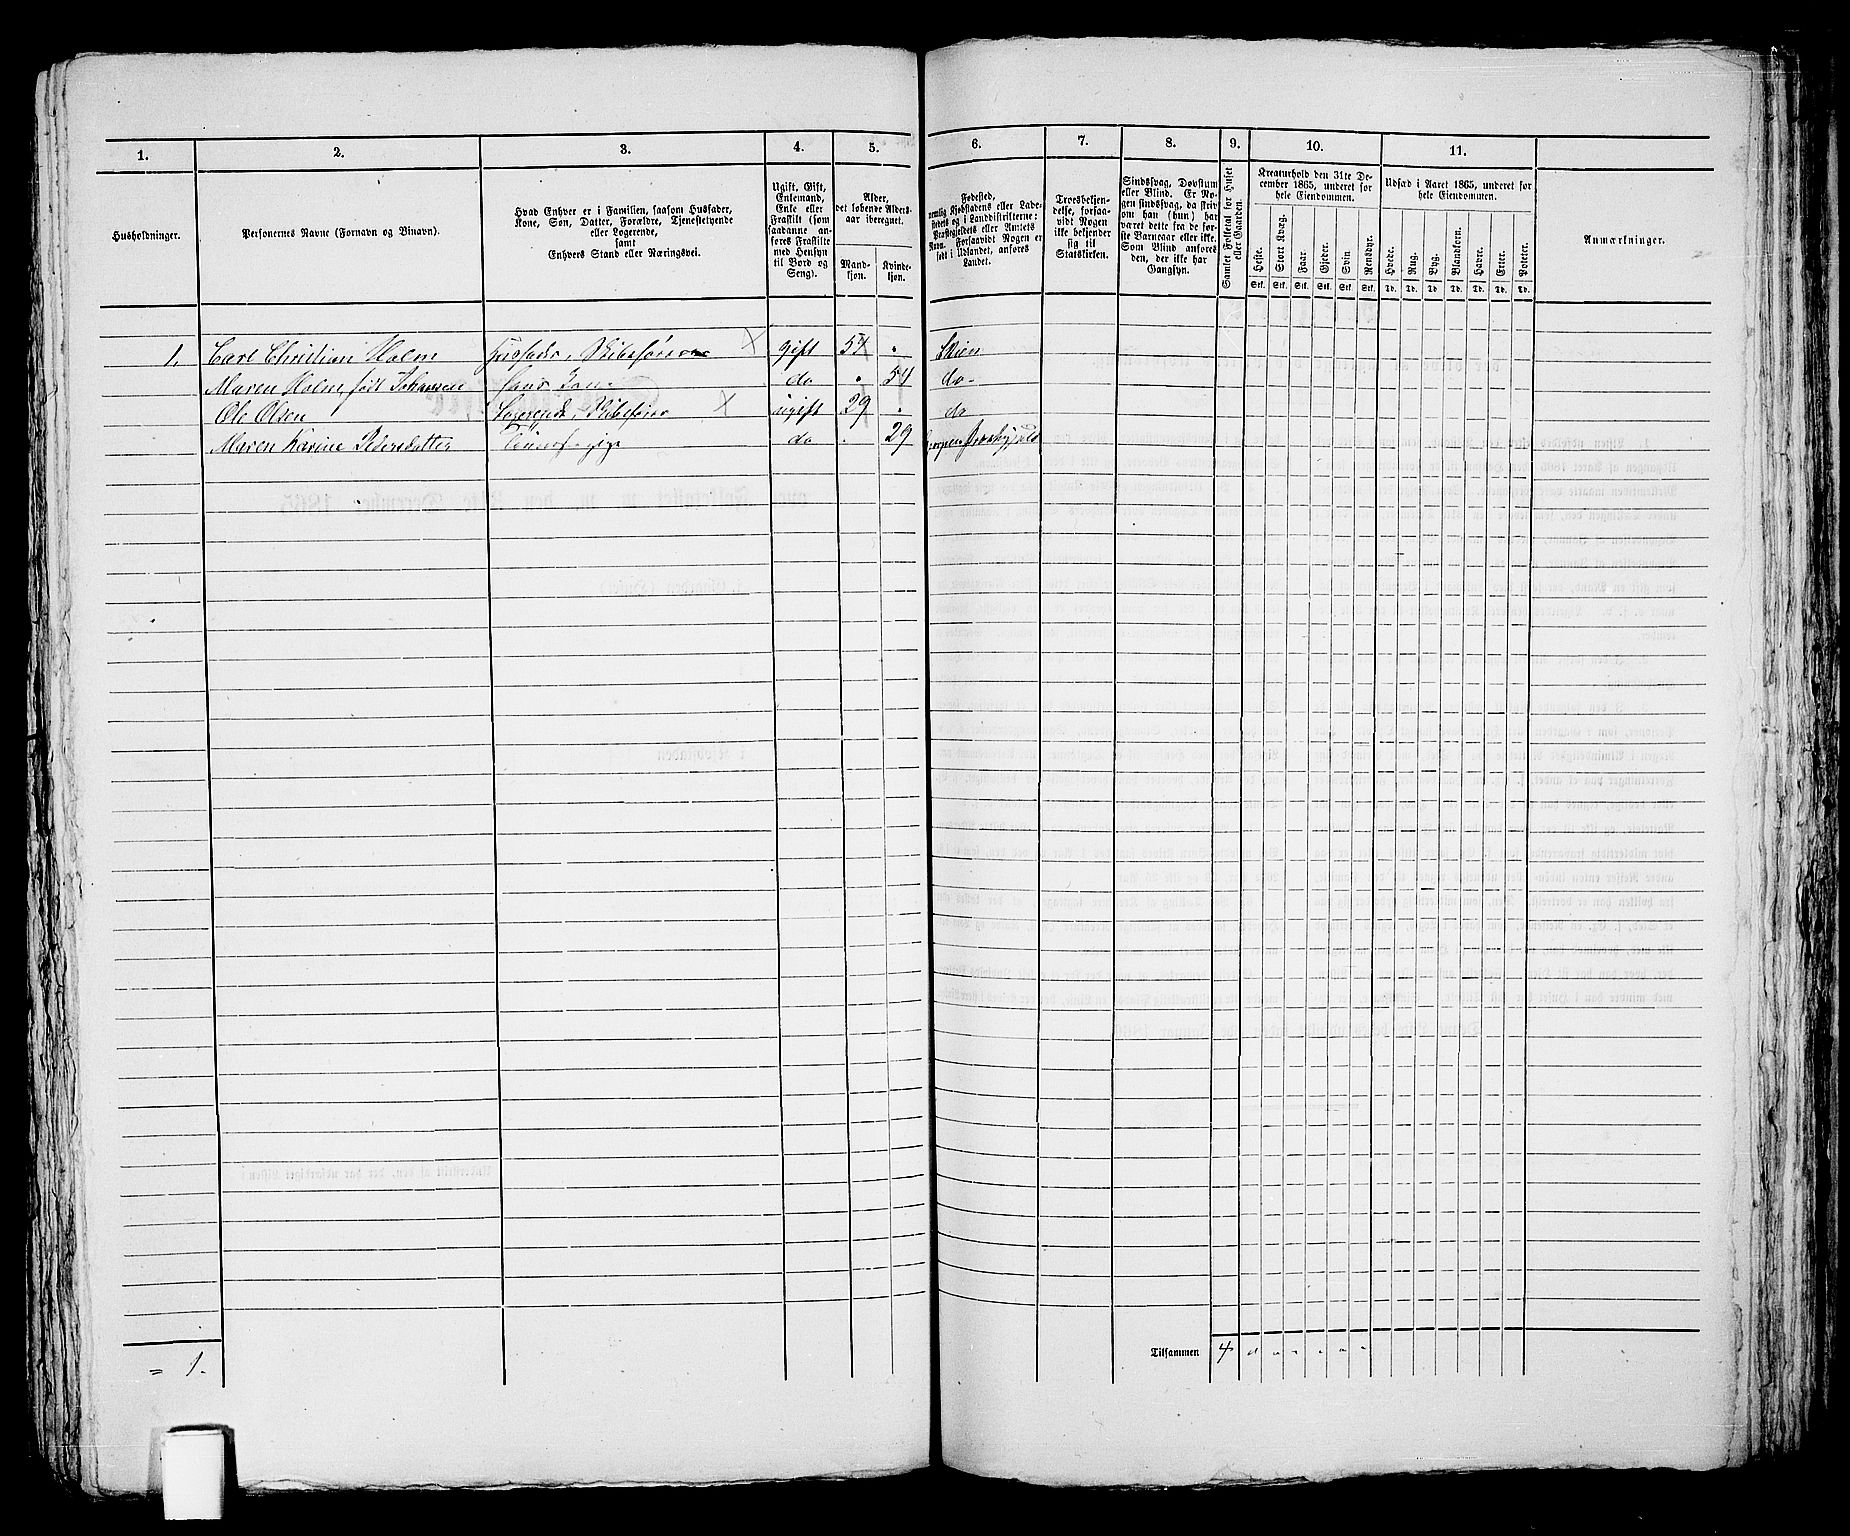 1. 2. 3. 4. 5. 6. 7. 8. 9. 10. 11.
Husholdninger.
Personernes Navne (Fornavn og Binavn).
Hvad Enhver er i Familien, saasom Husfader,
Kone, Søn, Datter, Forældre, Tjenestetyende
eller Logerende,
samt
Enhvers Stand eller Næringsvei.
Ugift, Gift,
Enkemand,
Enke eller
Fraskilt (som
saadanne an-
føres Fraskilte
med Hensyn
til Bord og
Seng).
Alder,
det løbende Alders-
aar iberegnet.
Mand-
kjøn.
Kvinde-
kjøn.
Fødested,
nemlig Kjøbstadens eller Lade-
stedets og i Landdistrikterne:
Præstegjeldets eller Amtets
Navn. Forsaavidt Nogen er
født i Udlandet, anføres
Landet.
Troesbekjen-
delse, forsaa-
vidt Nogen
ikke bekjender
sig til
Statskirken.
Sindssvag, Døvstum
eller Blind. Er No-
gen sindssvag, da skriv
om han (hun) har
været dette fra de før-
ste Barneaar eller ikke.
Som Blind anføres
den, der ikke har
Gangsyn.
Samlet Folketal for Huset
eller Gaarden.
Kreaturhold den 31te De-
cember 1865, underet for
hele Eiendommen.
Heste. Stort Kvæg. Faar. Gjeder. Svin Rensdyr.
Stk. Stk. Stk. Stk. Stk. Stk.
Udsæd i Aaret 1865, underet for
hele Eiendommen.
Hvede. Rug. Byg. Blandkorn. Havre. Erter. Poteter.
Td. Td. Td. Td. Td. Td. Td.
Anmærkninger.
1. Carl Christian Holm Husfader, gift 54 Skien
Maren Holm, født Johansen hans Kone do 54 do
Ole Olsen Logerende, ugift 29 do
Maren Karine Pedersdatter do 29
= 1.
Tilsammen 4